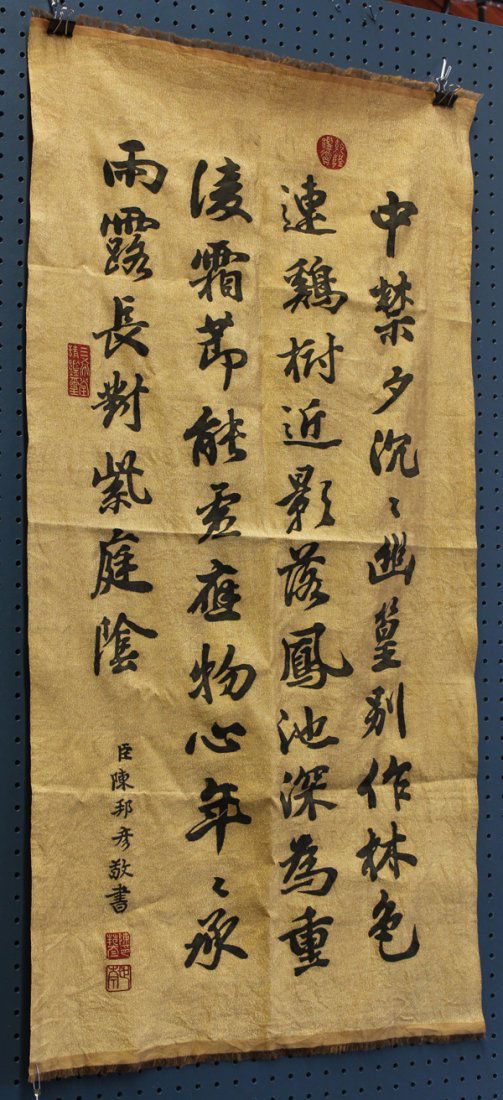 中禁夕沉〻幽篁別作林色
連鷄樹近影落鳳池深為重
凌霜節能虛應物心年〻承
雨露長對紫庭陰
臣陳邦彥敬書
三希堂
精鑑璽